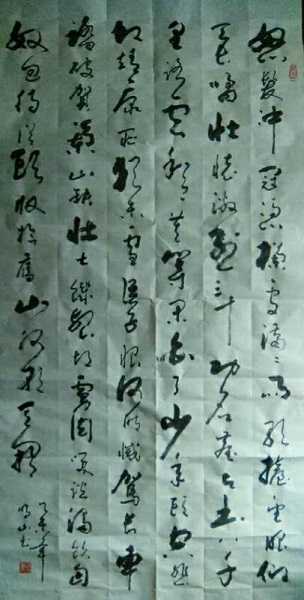 怒髮冲冠憑欄處瀟瀟雨歇抬望眼仰
天長嘯壮懷激烈三十功名塵與土八千
里路雲和月莫等閑白了少年頭空悲
切靖康恥猶未雪臣子恨何時滅駕長車
踏破賀蘭山缺壮士饑餐胡虜肉笑談渴飲匈
奴血待從頭收拾舊山河朝天闕
乙未年